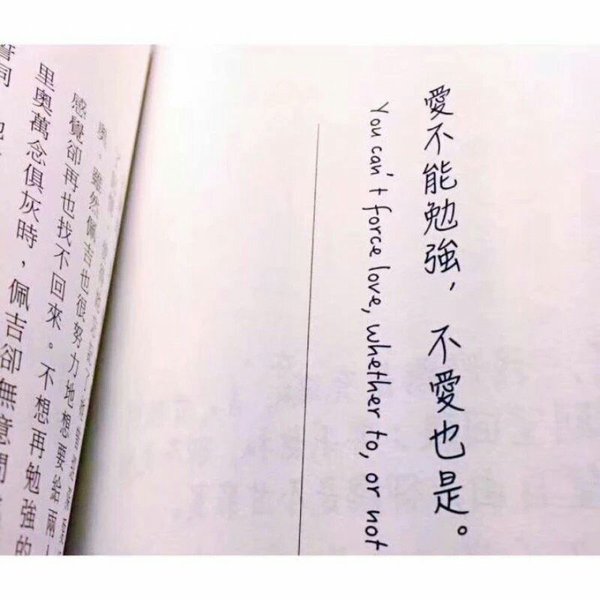 愛不能勉強，不愛也是。
You can't force love, whether to, or not
奧。雖然佩吉也很努力地想要給兩
感覺卻再也找不回來。不想再勉強的
里奧萬念俱灰時，佩吉卻無意間